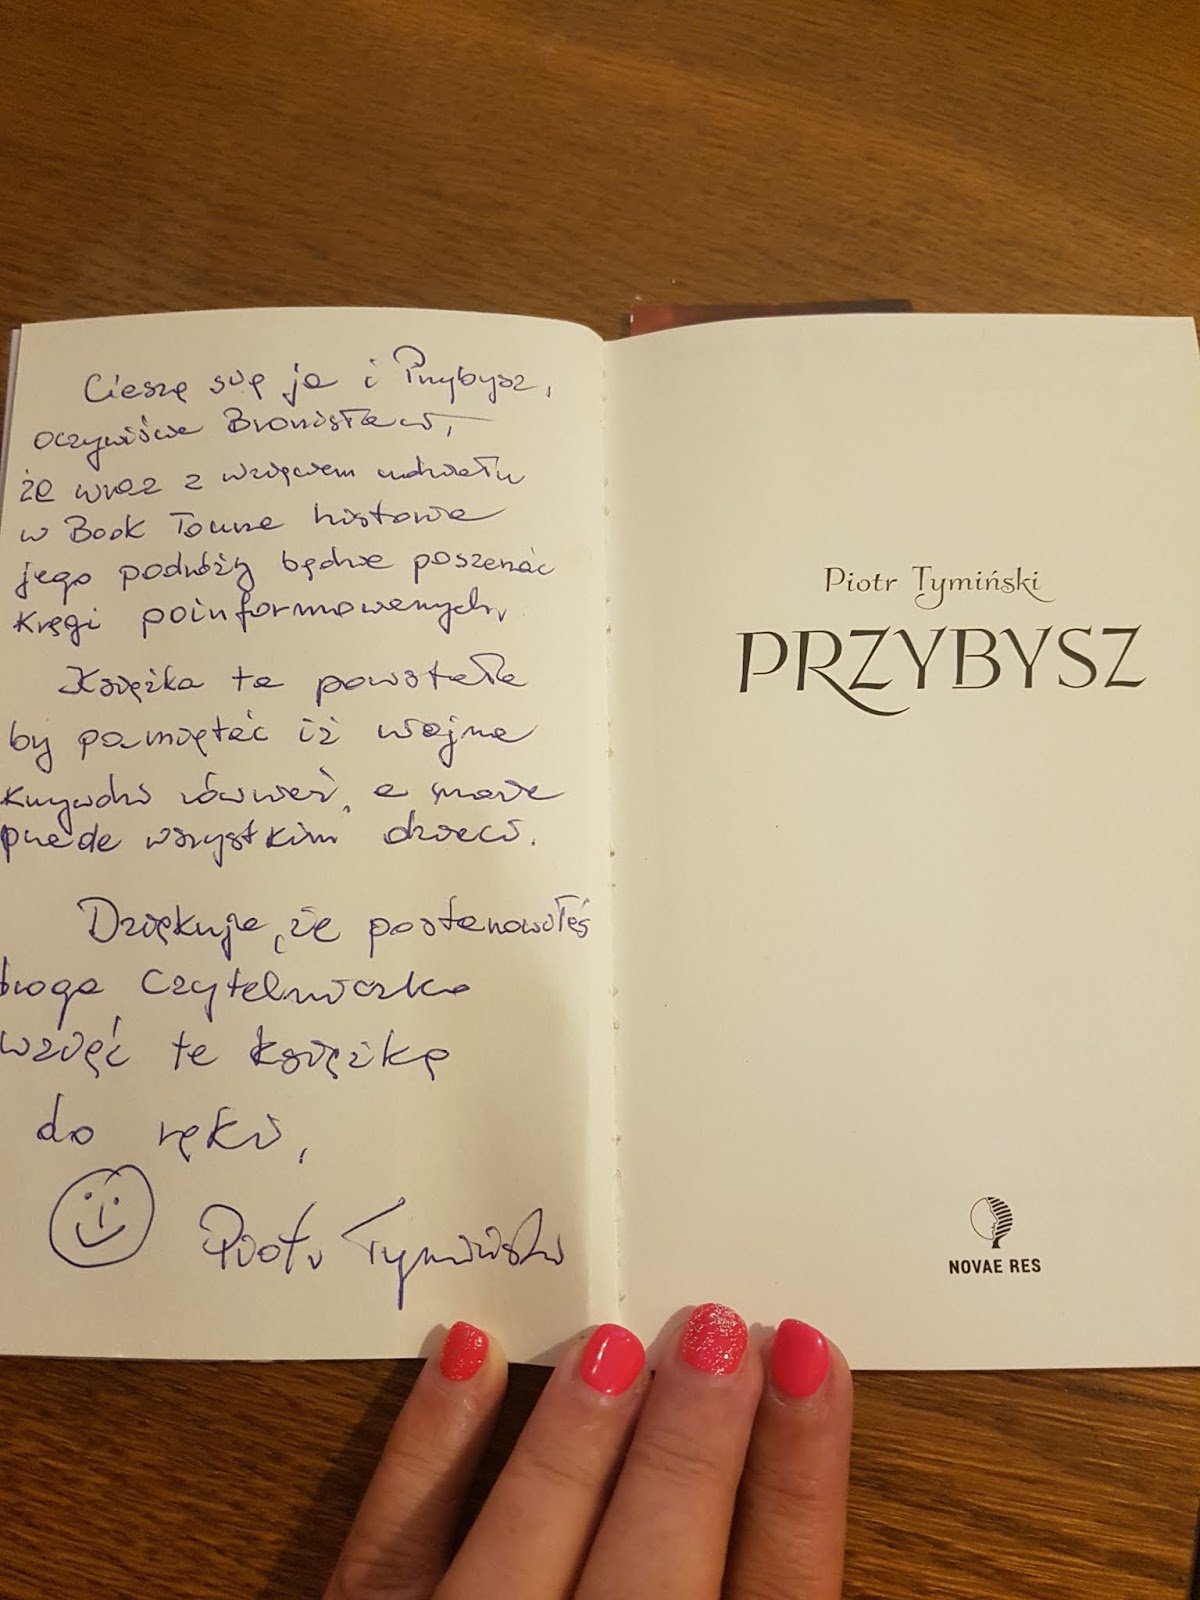 Cieszę się ja i Przybysz,
oczywiście Bronisław,
że wraz z wzięciem udziału
w Book Tourze historia
jego podróży będzie poszerzać
kręgi poinformowanych.
Książka ta powstała
by pamiętać iż wojna
krzywdzi również, a może
przede wszystkim dzieci.
Dziękuję, że postanowiłaś
droga Czytelniczko
wziąć tę książkę
do ręki,
Piotr Tymiński
Piotr Tymiński
PRZYBYSZ
NOVAE RES